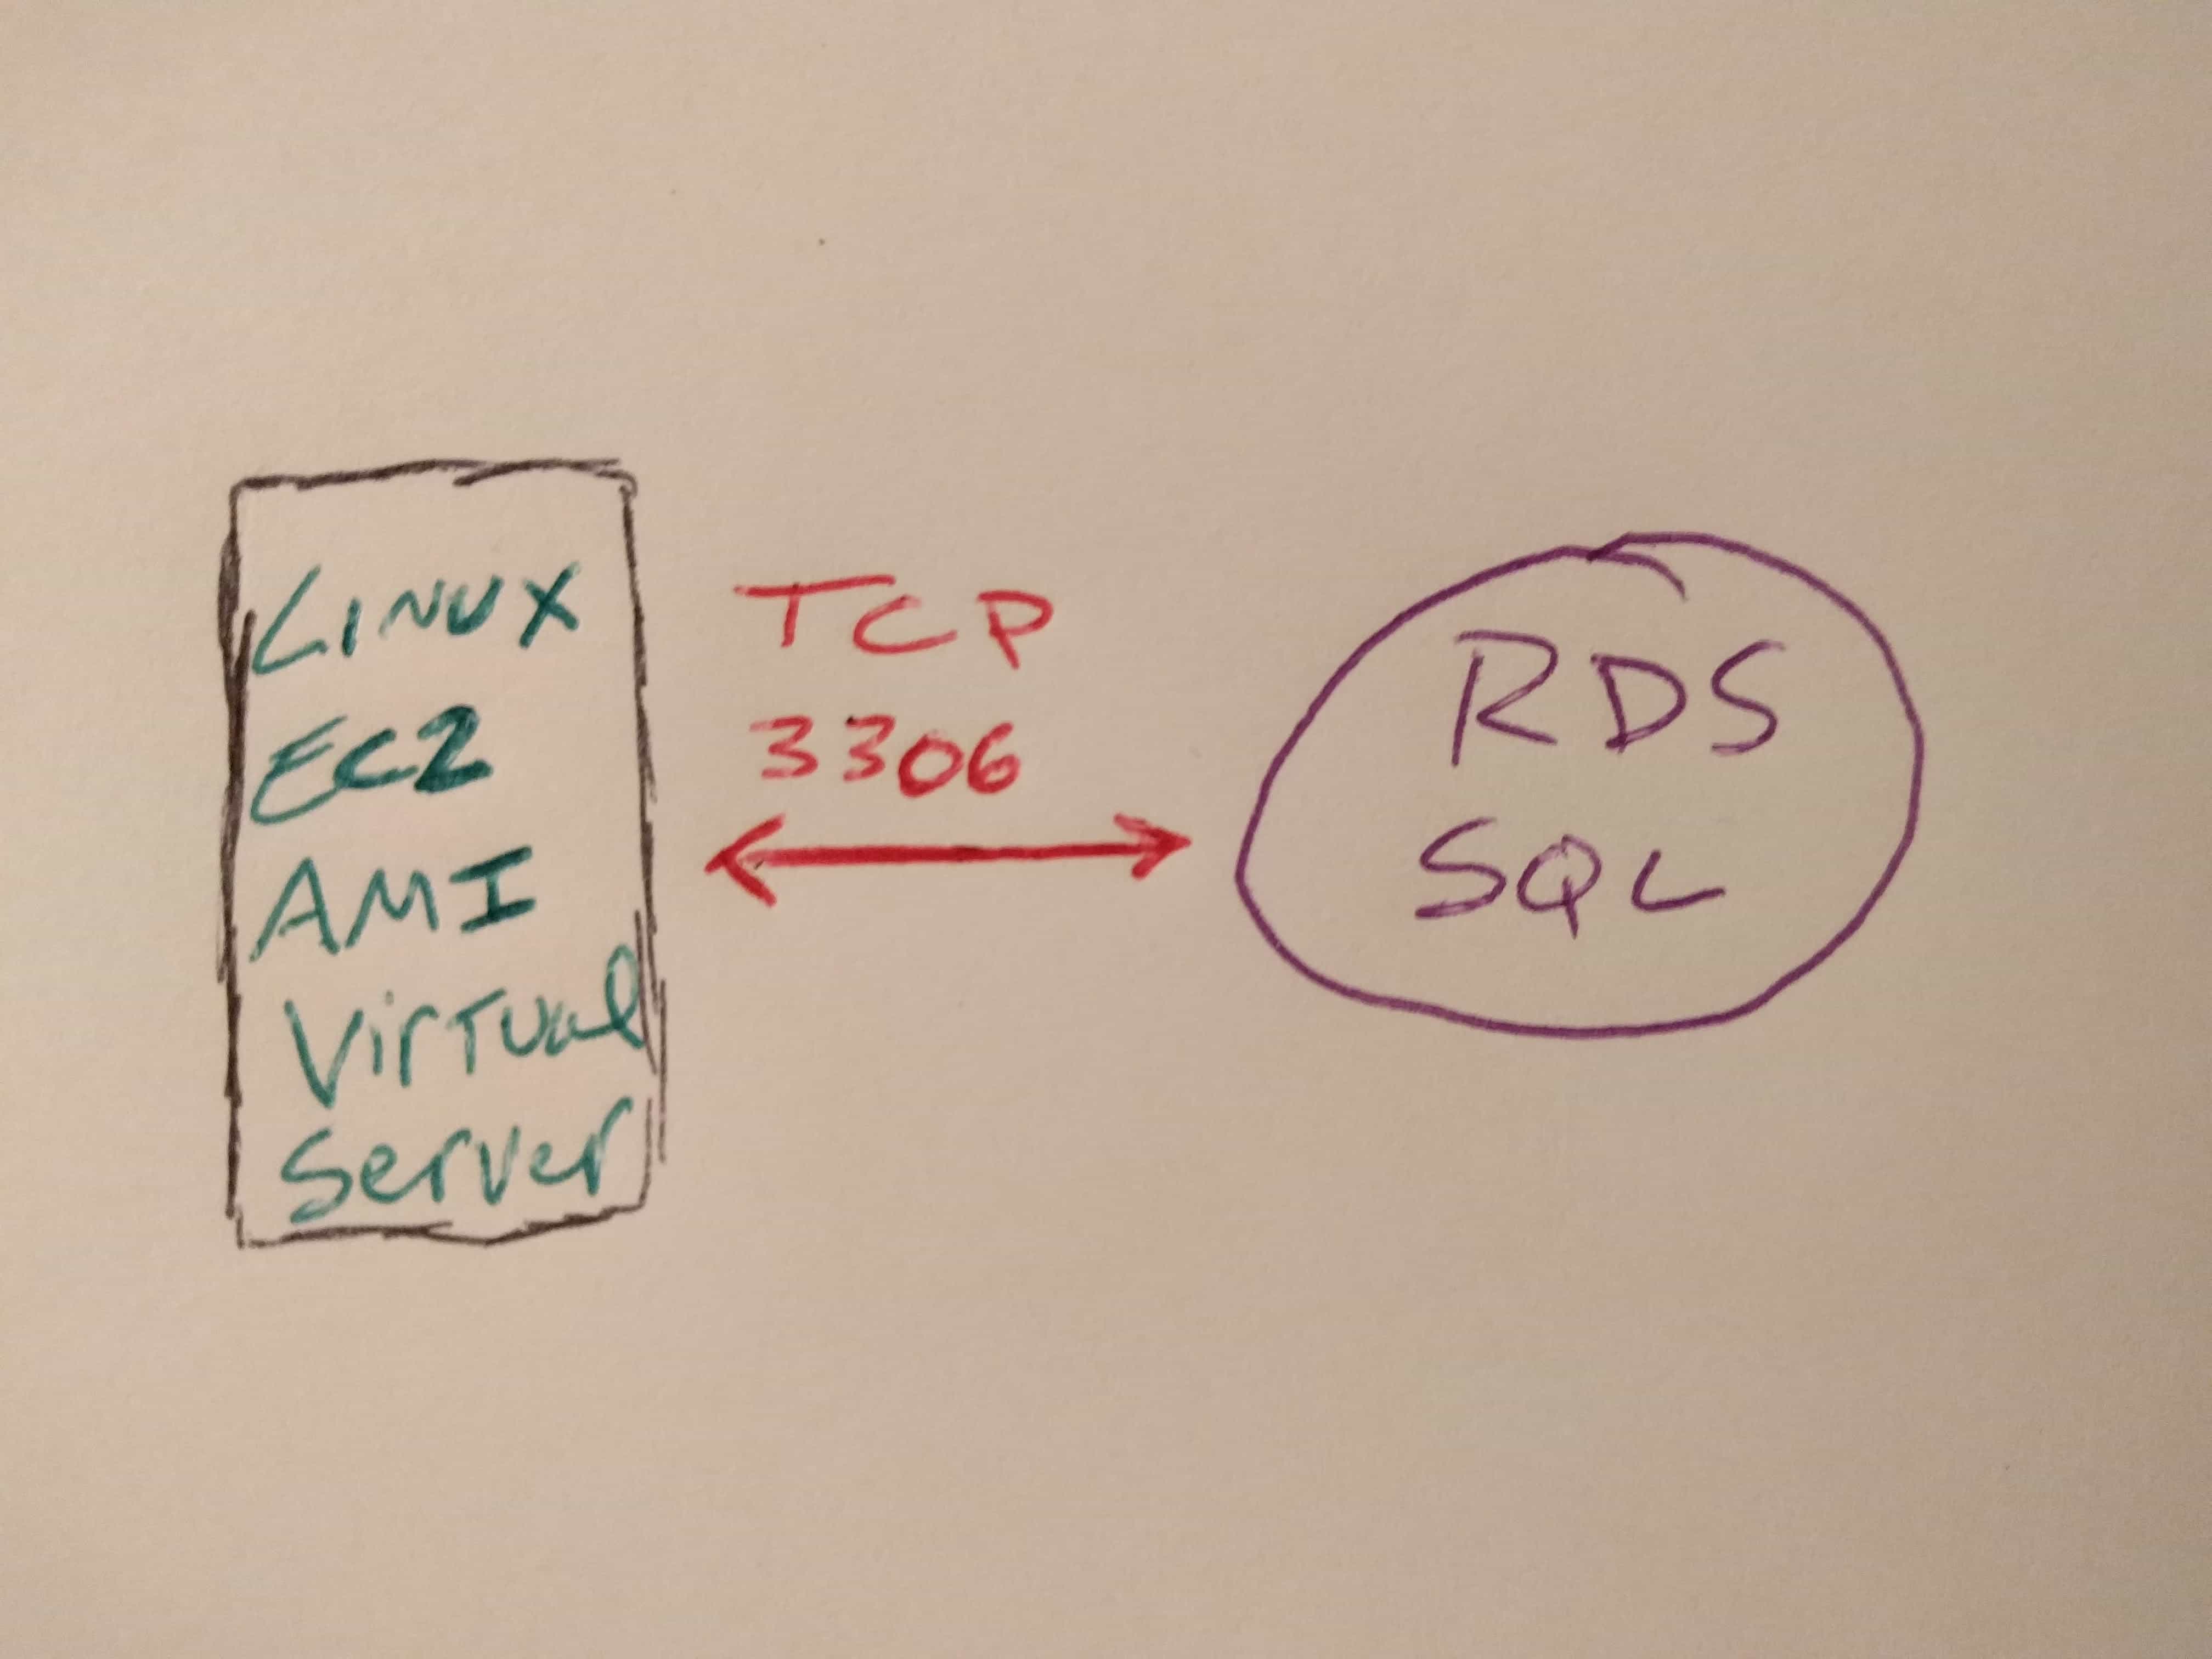 LINUX
EC2
AMI
Virtual
Server
TCP
3306
RDS
SQL